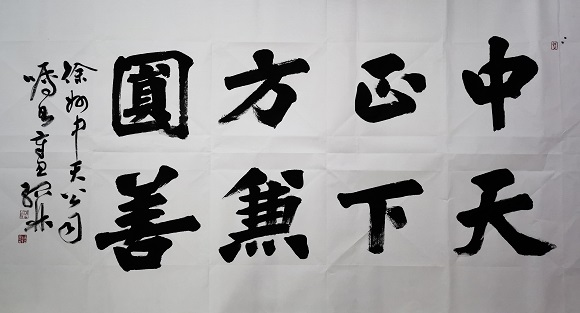 中正方圓
天下兼善
徐州中天公司
嘱
書